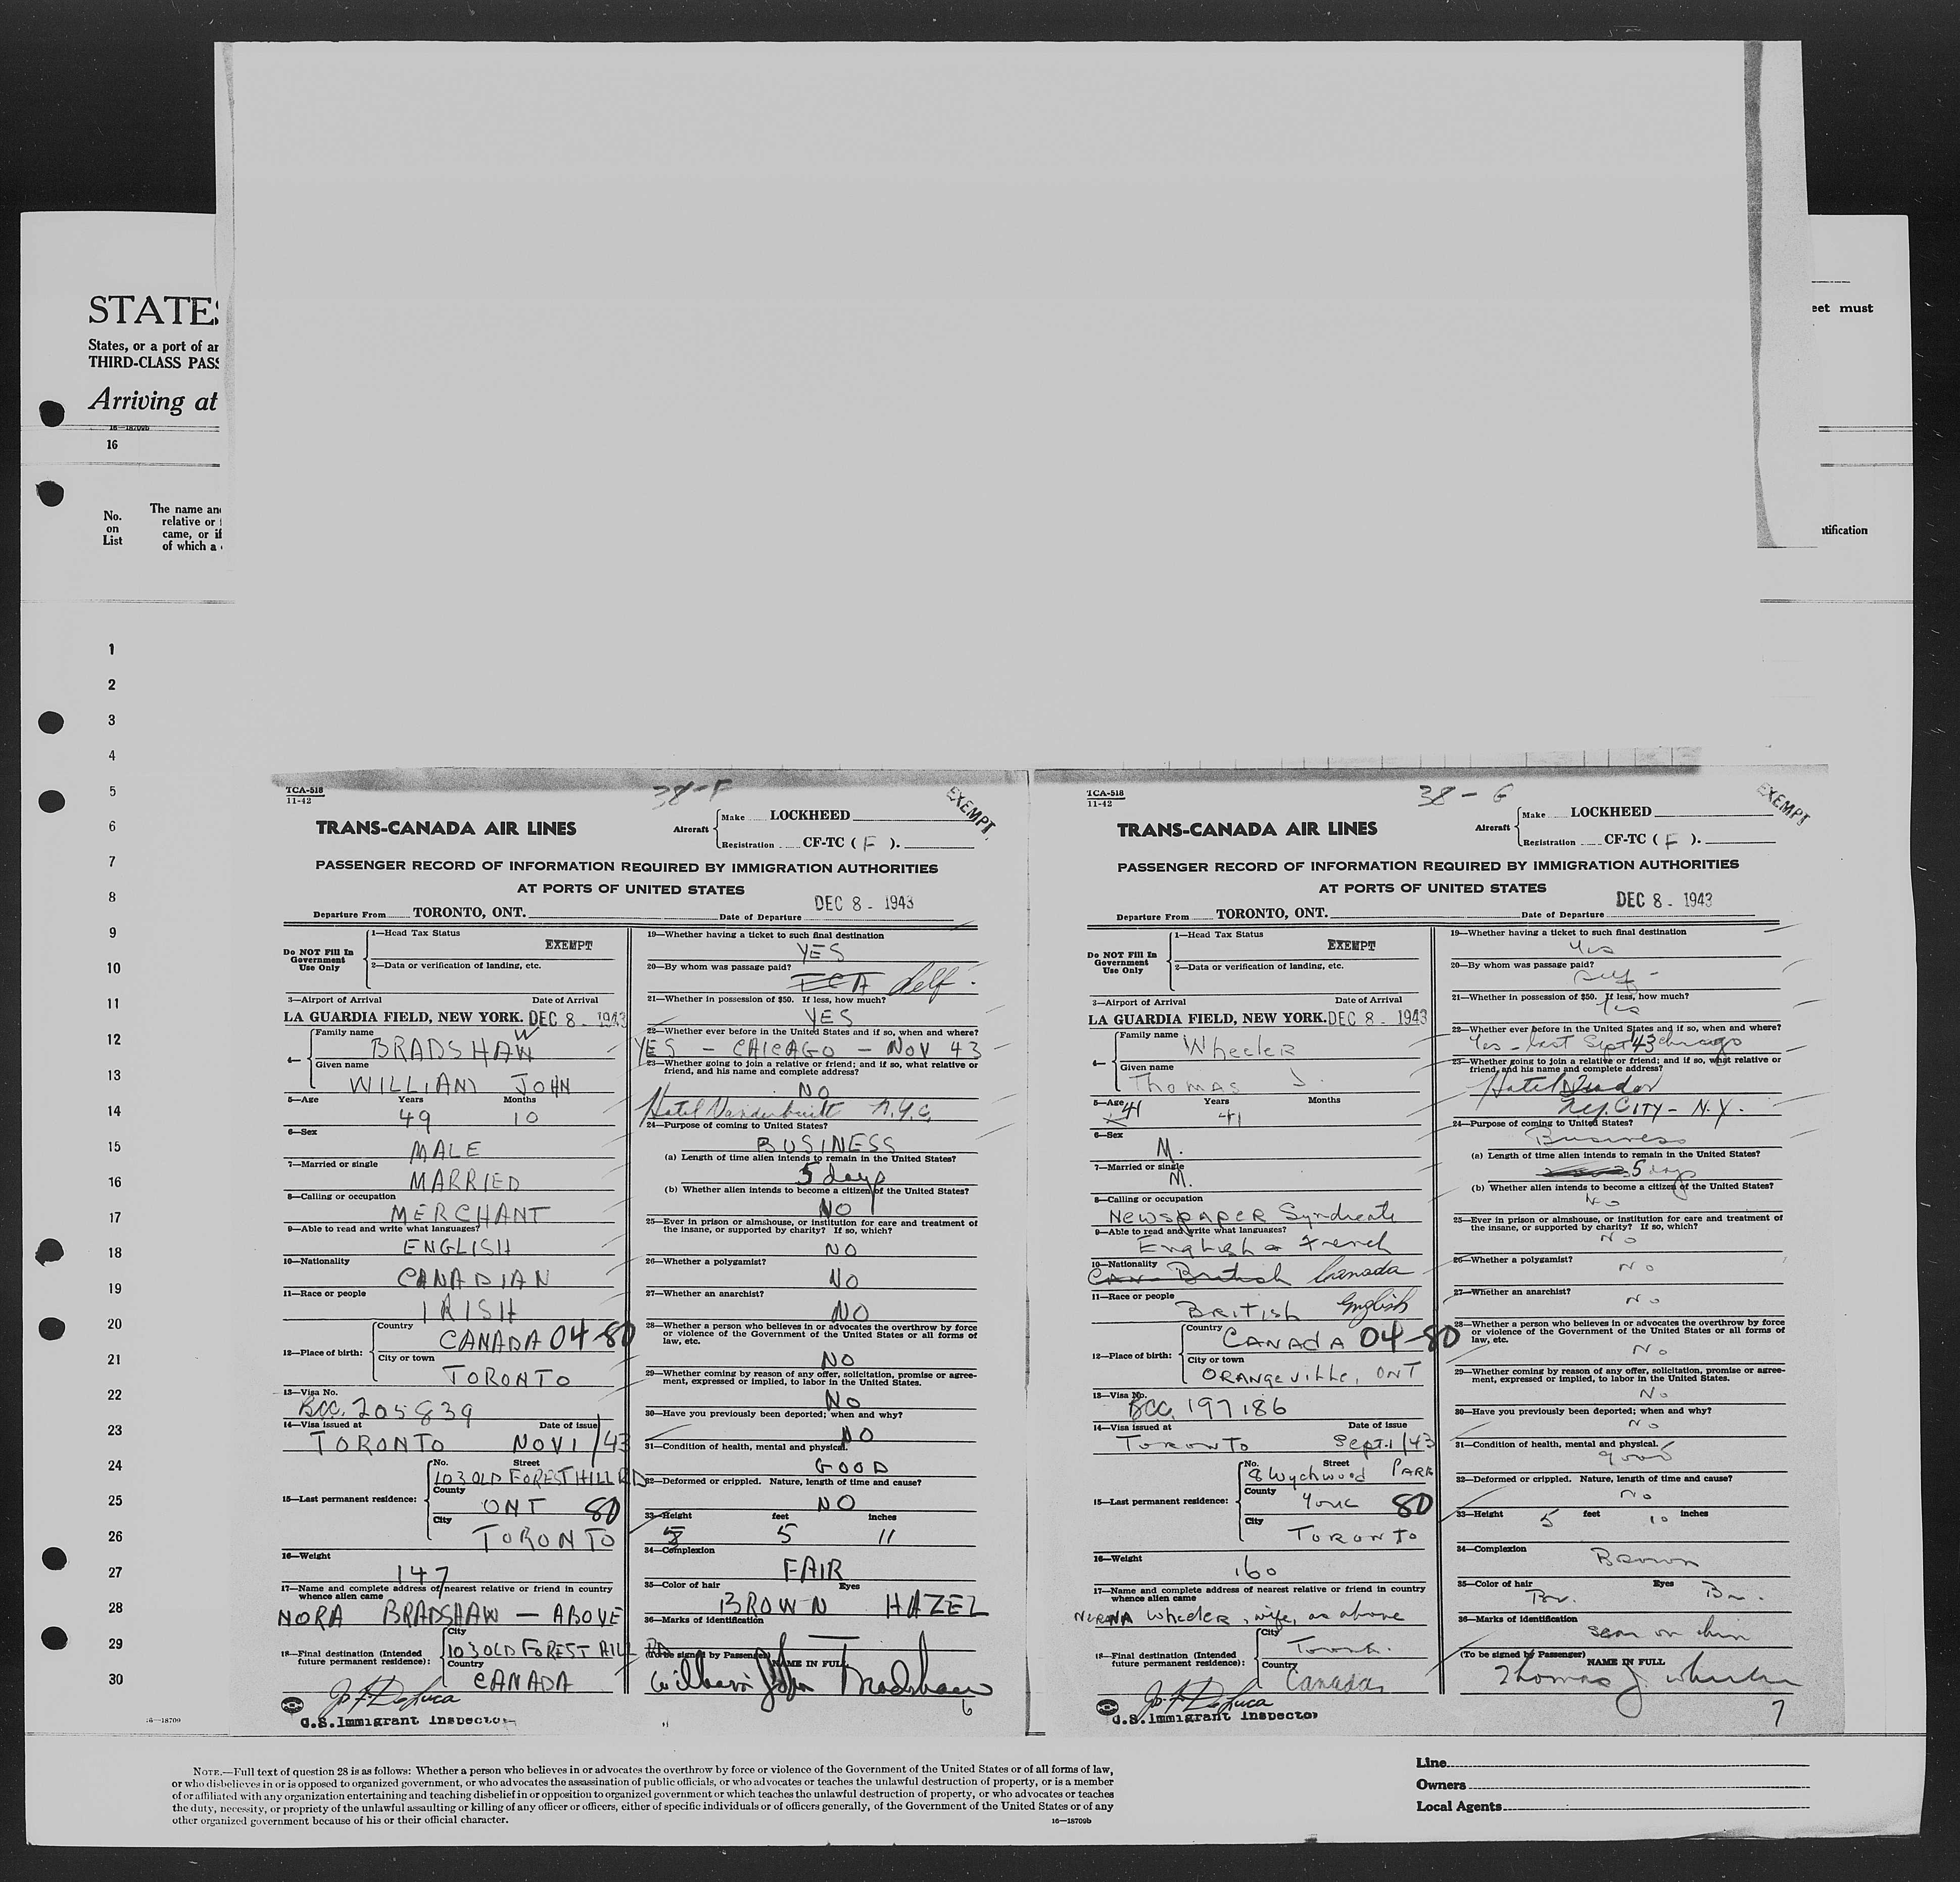 STATES
States, or a port of
THIRD-CLASS
Arriving at
16—18709b
16
eet must
No.
on
List
The name
relative or
came, or if
of which a
1
2
3
4
5
6
7
8
9
10
11
12
13
14
15
16
17
18
19
20
21
22
23
24
25
26
27
28
29
30
16—18700
TCA-518
11-42
38-F
EXEMPT
TRANS-CANADA AIR LINES
Aircraft
Make LOCKHEED
Registration CF-TC ( F ).
PASSENGER RECORD OF INFORMATION REQUIRED BY IMMIGRATION AUTHORITIES
AT PORTS OF UNITED STATES
DEC 8 - 1943
Departure From TORONTO, ONT. Date of Departure
Do NOT Fill In
Government
Use Only
1—Head Tax Status
EXEMPT
2—Data or verification of landing, etc.
3—Airport of Arrival Date of Arrival
LA GUARDIA FIELD, NEW YORK. DEC 8 - 1943
4— Family name
BRADSHAW
Given name
WILLIAM JOHN
5—Age Years Months
49 10
6—Sex
MALE
7—Married or single
MARRIED
8—Calling or occupation
MERCHANT
9—Able to read and write what languages?
ENGLISH
10—Nationality
CANADIAN
11—Race or people
IRISH
12—Place of birth:
Country
CANADA 04-80
City or town
TORONTO
13—Visa No.
BCC. 205839
14—Visa issued at Date of issue
TORONTO NOV 1/43
15—Last permanent residence:
No. Street
103 OLD FOREST HILL RD
County
ONT 80
City
TORONTO
16—Weight
147
17—Name and complete address of nearest relative or friend in country
whence alien came
NORA BRADSHAW — ABOVE
18—Final destination (Intended
future permanent residence):
City
103 OLD FOREST HILL RD
Country
CANADA
U.S. Immigrant Inspector
19—Whether having a ticket to such final destination
YES
20—By whom was passage paid?
TCA Self.
21—Whether in possession of $50. If less, how much?
YES
22—Whether ever before in the United States and if so, when and where?
YES — CHICAGO — NOV 43
23—Whether going to join a relative or friend; and if so, what relative or
friend, and his name and complete address?
NO
Hotel Vanderbuilt N.Y.C.
24—Purpose of coming to United States?
BUSINESS
(a) Length of time alien intends to remain in the United States?
5 days
(b) Whether alien intends to become a citizen of the United States?
NO
25—Ever in prison or almshouse, or institution for care and treatment of
the insane, or supported by charity? If so, which?
NO
26—Whether a polygamist?
NO
27—Whether an anarchist?
NO
28—Whether a person who believes in or advocates the overthrow by force
or violence of the Government of the United States or all forms of
law, etc.
NO
29—Whether coming by reason of any offer, solicitation, promise or agree-
ment, expressed or implied, to labor in the United States.
NO
30—Have you previously been deported; when and why?
NO
31—Condition of health, mental and physical.
GOOD
32—Deformed or crippled. Nature, length of time and cause?
NO
33—Height feet inches
5 11
34—Complexion
FAIR
35—Color of hair Eyes
BROWN HAZEL
36—Marks of identification
—
(To be signed by Passenger) NAME IN FULL
William John Bradshaw
6
TCA-518
11-42
38-G
EXEMPT
TRANS-CANADA AIR LINES
Aircraft
Make LOCKHEED
Registration CF-TC ( F ).
PASSENGER RECORD OF INFORMATION REQUIRED BY IMMIGRATION AUTHORITIES
AT PORTS OF UNITED STATES
DEC 8 - 1943
Departure From TORONTO, ONT. Date of Departure
Do NOT Fill In
Government
Use Only
1—Head Tax Status
EXEMPT
2—Data or verification of landing, etc.
3—Airport of Arrival Date of Arrival
LA GUARDIA FIELD, NEW YORK. DEC 8 - 1943
4— Family name
Wheeler
Given name
Thomas J.
5—Age Years Months
41 41
6—Sex
M.
7—Married or single
M.
8—Calling or occupation
Newspaper Syndicate
9—Able to read and write what languages?
English & French
10—Nationality
Can - British Canada
11—Race or people
British English
12—Place of birth:
Country
CANADA 04-80
City or town
ORANGEVILLE, ONT
13—Visa No.
BCC. 197186
14—Visa issued at Date of issue
Toronto Sept. 1/43
15—Last permanent residence:
No. Street
8 Wychwood PARK
County
York 80
City
Toronto
16—Weight
160
17—Name and complete address of nearest relative or friend in country
whence alien came
Wheeler, wife, as above
18—Final destination (Intended
future permanent residence):
City
Toronto
Country
Canada
U.S. Immigrant Inspector
19—Whether having a ticket to such final destination
Yes
20—By whom was passage paid?
Self -
21—Whether in possession of $50. If less, how much?
Yes
22—Whether ever before in the United States and if so, when and where?
Yes - last Sept 43 Chicago
23—Whether going to join a relative or friend; and if so, what relative or
friend, and his name and complete address?
Hotel
N.Y. CITY - N.Y.
24—Purpose of coming to United States?
Business
(a) Length of time alien intends to remain in the United States?
5 days
(b) Whether alien intends to become a citizen of the United States?
No
25—Ever in prison or almshouse, or institution for care and treatment of
the insane, or supported by charity? If so, which?
No
26—Whether a polygamist?
No
27—Whether an anarchist?
No
28—Whether a person who believes in or advocates the overthrow by force
or violence of the Government of the United States or all forms of
law, etc.
No
29—Whether coming by reason of any offer, solicitation, promise or agree-
ment, expressed or implied, to labor in the United States.
No
30—Have you previously been deported; when and why?
No
31—Condition of health, mental and physical.
good
32—Deformed or crippled. Nature, length of time and cause?
No
33—Height feet inches
5 10
34—Complexion
Brown
35—Color of hair Eyes
Br. Br.
36—Marks of identification
scar on chin
(To be signed by Passenger) NAME IN FULL
Thomas J. Wheeler
7
NOTE.—Full text of question 28 is as follows: Whether a person who believes in or advocates the overthrow by force or violence of the Government of the United States or of all forms of law,
or who disbelieves in or is opposed to organized government, or who advocates the assassination of public officials, or who advocates or teaches the unlawful destruction of property, or is a member
of or affiliated with any organization entertaining and teaching disbelief in or opposition to organized government or which teaches the unlawful destruction of property, or who advocates or teaches
the duty, necessity, or propriety of the unlawful assaulting or killing of any officer or officers, either of specific individuals or of officers generally, of the Government of the United States or of any
other organized government because of his or their official character.
16—18709b
Line
Owners
Local Agents